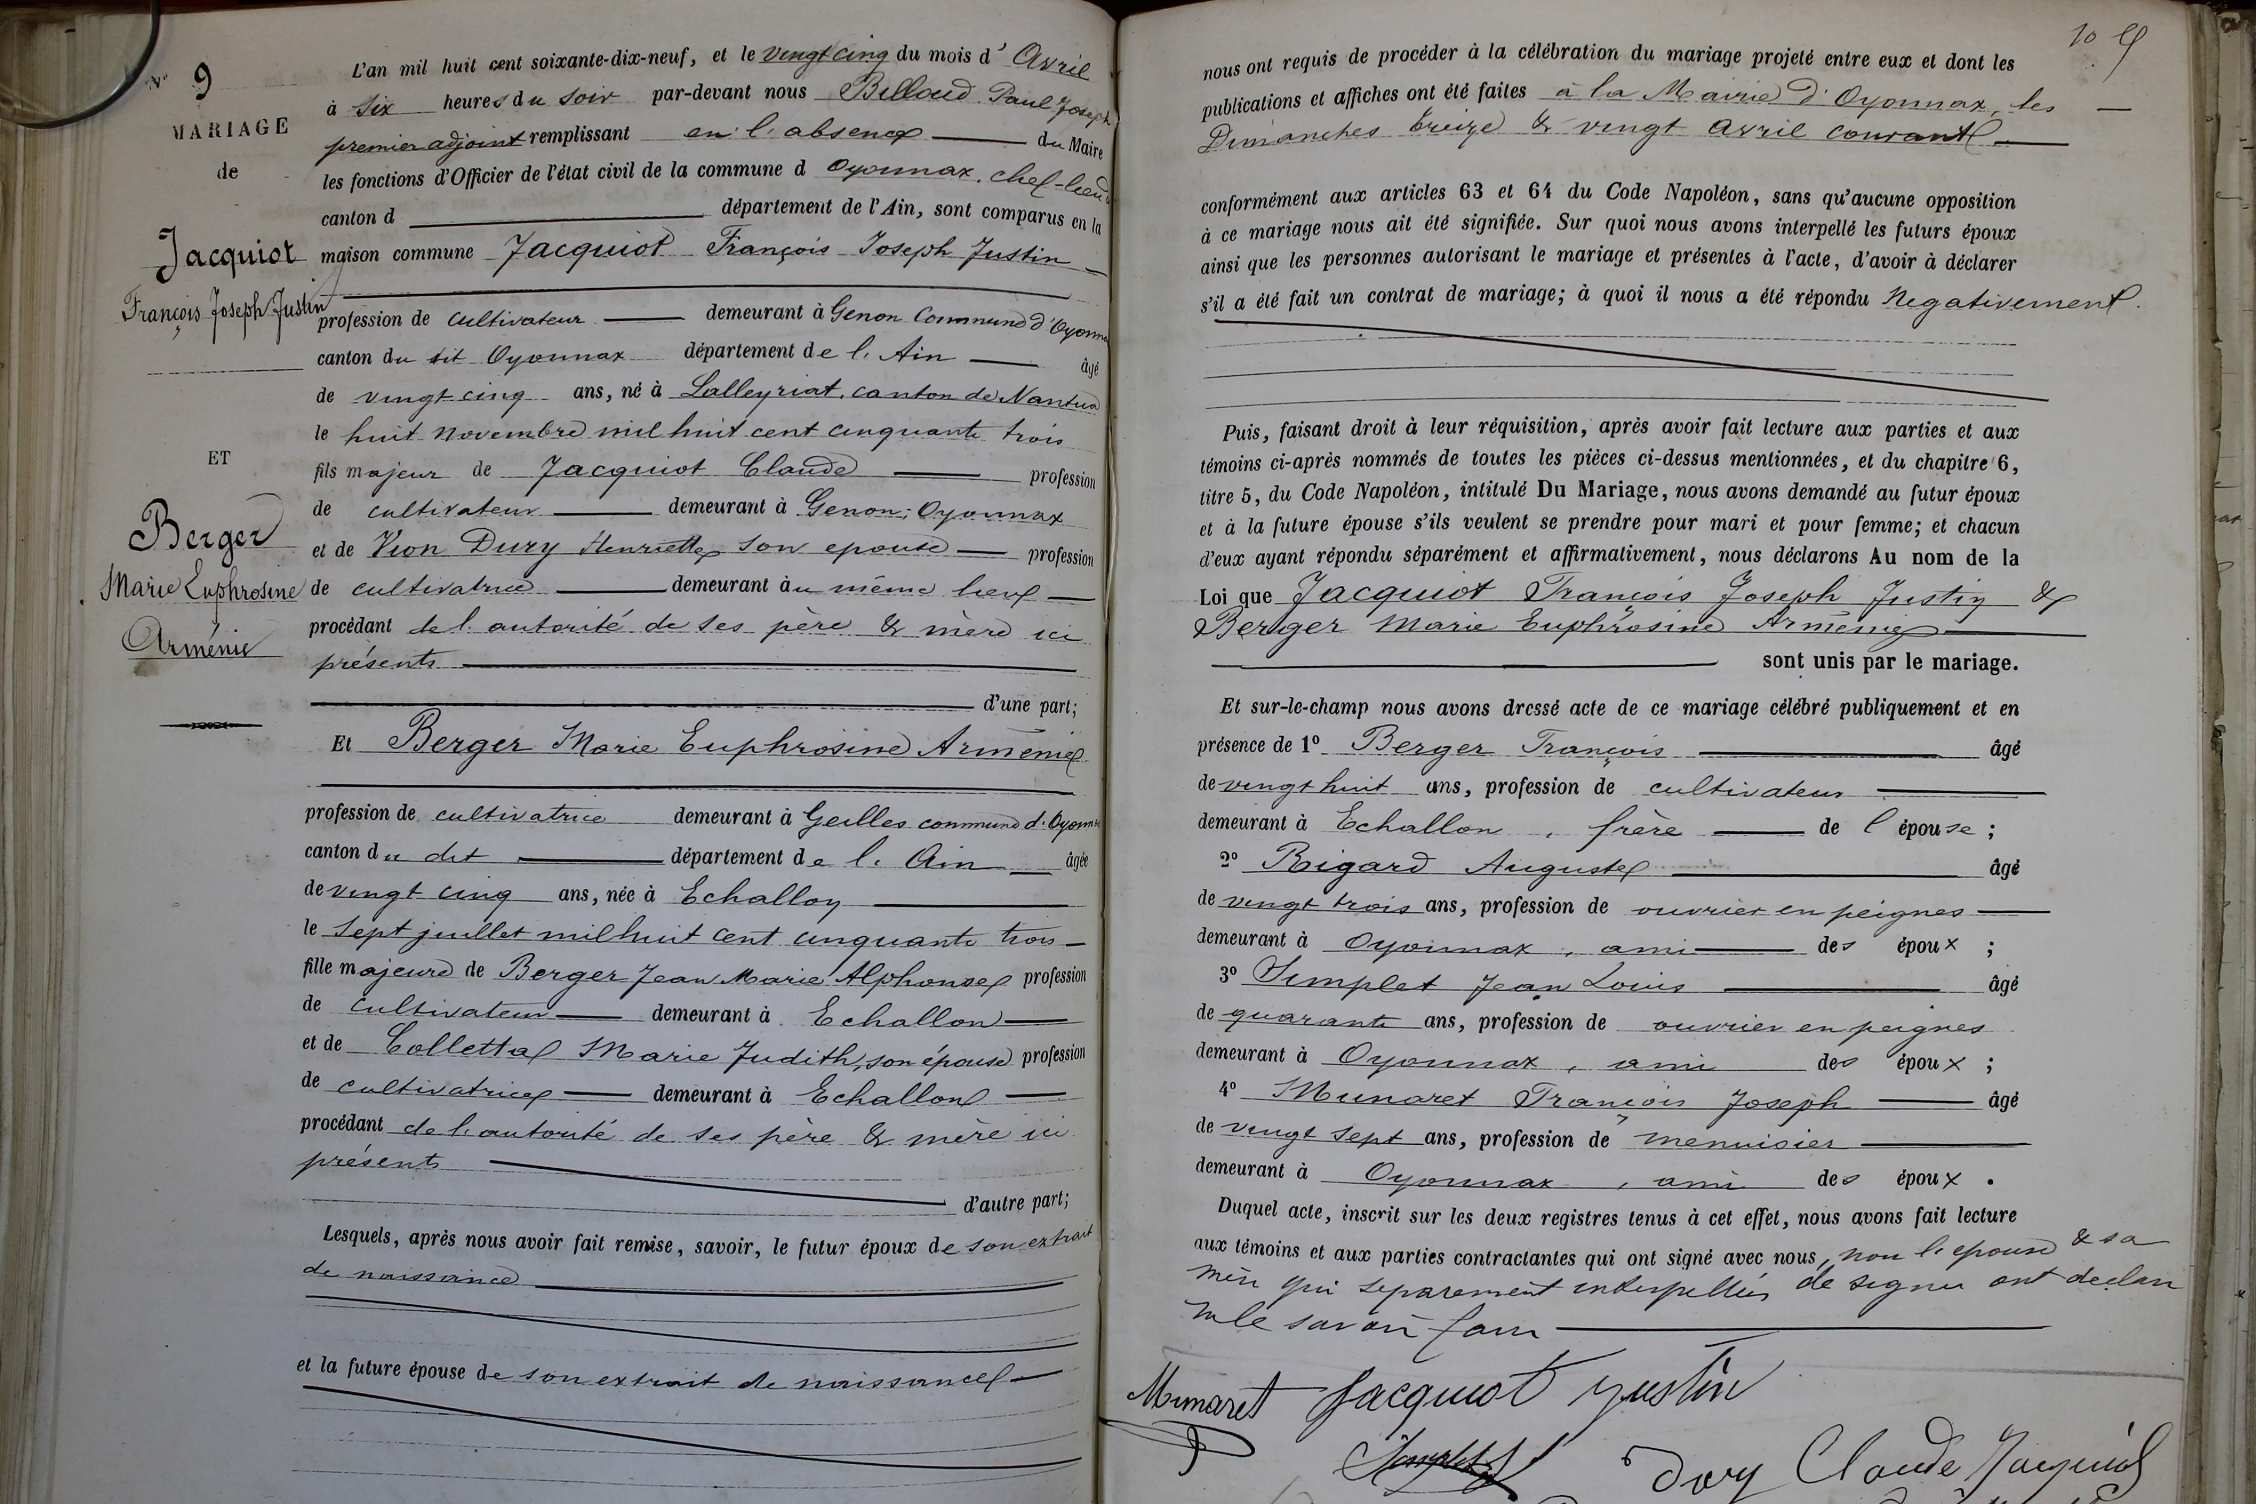 N° 9
MARIAGE
de
Jacquiot
François Joseph Justin
ET
Berger
Marie Euphrosine
Arménie
L'an mil huit cent soixante-dix-neuf, et le vingt cinq du mois d' Avril
à six heures du soir par-devant nous Billoud Paul Joseph
premier adjoint remplissant en l'absence du Maire
les fonctions d'Officier de l'état civil de la commune d Oyonnax, chef-lieu
canton d département de l'Ain, sont comparus en la
maison commune Jacquiot François Joseph Justin
profession de cultivateur demeurant à Genon Commune d'Oyonnax
canton du dit Oyonnax département de l'Ain âgé
de vingt cinq ans, né à Lalleyriat, canton de Nantua
le huit novembre mil huit cent cinquante trois
fils majeur de Jacquiot Claude profession
de cultivateur demeurant à Genon, Oyonnax
et de Vion Dury Henriette son epouse profession
de cultivatrice demeurant au même lieu
procédant de l'autorité de ses père & mère ici
présents
d'une part;
Et Berger Marie Euphrosine Arménie
profession de cultivatrice demeurant à Geilles commune d'Oyonnax
canton du dit département de l'Ain âgée
de vingt cinq ans, née à Echallon
le sept juillet mil huit cent cinquante trois
fille majeure de Berger Jean Marie Alphonse profession
de cultivateur demeurant à Echallon
et de Colletta Marie Judith, son épouse profession
de cultivatrice demeurant à Echallon
procédant de l'autorité de ses père & mère ici
présents
d'autre part;
Lesquels, après nous avoir fait remise, savoir, le futur époux de son extrait
de naissance
et la future épouse de son extrait de naissance
10
nous ont requis de procéder à la célébration du mariage projeté entre eux et dont les
publications et affiches ont été faites à la Mairie d'Oyonnax, les
Dimanches treize & vingt avril courant
conformément aux articles 63 et 64 du Code Napoléon, sans qu'aucune opposition
à ce mariage nous ait été signifiée. Sur quoi nous avons interpellé les futurs époux
ainsi que les personnes autorisant le mariage et présentes à l'acte, d'avoir à déclarer
s'il a été fait un contrat de mariage; à quoi il nous a été répondu Negativement.
Puis, faisant droit à leur réquisition, après avoir fait lecture aux parties et aux
témoins ci-après nommés de toutes les pièces ci-dessus mentionnées, et du chapitre 6,
titre 5, du Code Napoléon, intitulé Du Mariage, nous avons demandé au futur époux
et à la future épouse s'ils veulent se prendre pour mari et pour femme; et chacun
d'eux ayant répondu séparément et affirmativement, nous déclarons Au nom de la
Loi que Jacquiot François Joseph Justin &
Berger Marie Euphrosine Arménie
sont unis par le mariage.
Et sur-le-champ nous avons dressé acte de ce mariage célébré publiquement et en
présence de 1° Berger François âgé
de vingt huit ans, profession de cultivateur
demeurant à Echallon, frère de l'épouse;
2° Rigard Auguste âgé
de vingt trois ans, profession de ouvrier en peignes
demeurant à Oyonnax, ami des époux;
3° Simplet Jean Louis âgé
de quarante ans, profession de ouvrier en peignes
demeurant à Oyonnax, ami des époux;
4° Munaret François Joseph âgé
de vingt sept ans, profession de menuisier
demeurant à Oyonnax, ami des époux.
Duquel acte, inscrit sur les deux registres tenus à cet effet, nous avons fait lecture
aux témoins et aux parties contractantes qui ont signé avec nous, non l'epouse & sa
mère qui separement interpellées de signer ont declaré
ne le savoir faire
Munaret Jacquiot Justin
Simplet Dory Claude Jacquiot